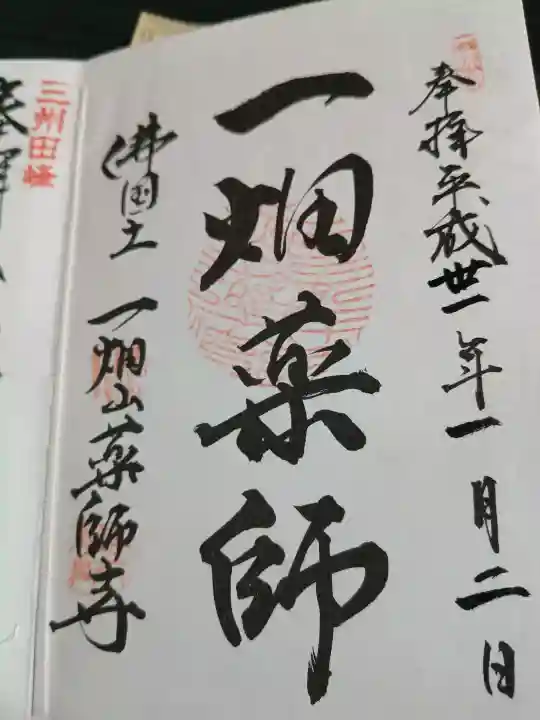 奉拝平成丗一年一月二日
一畑薬師
佛国土 一畑山薬師寺
三州田峰
奉拝